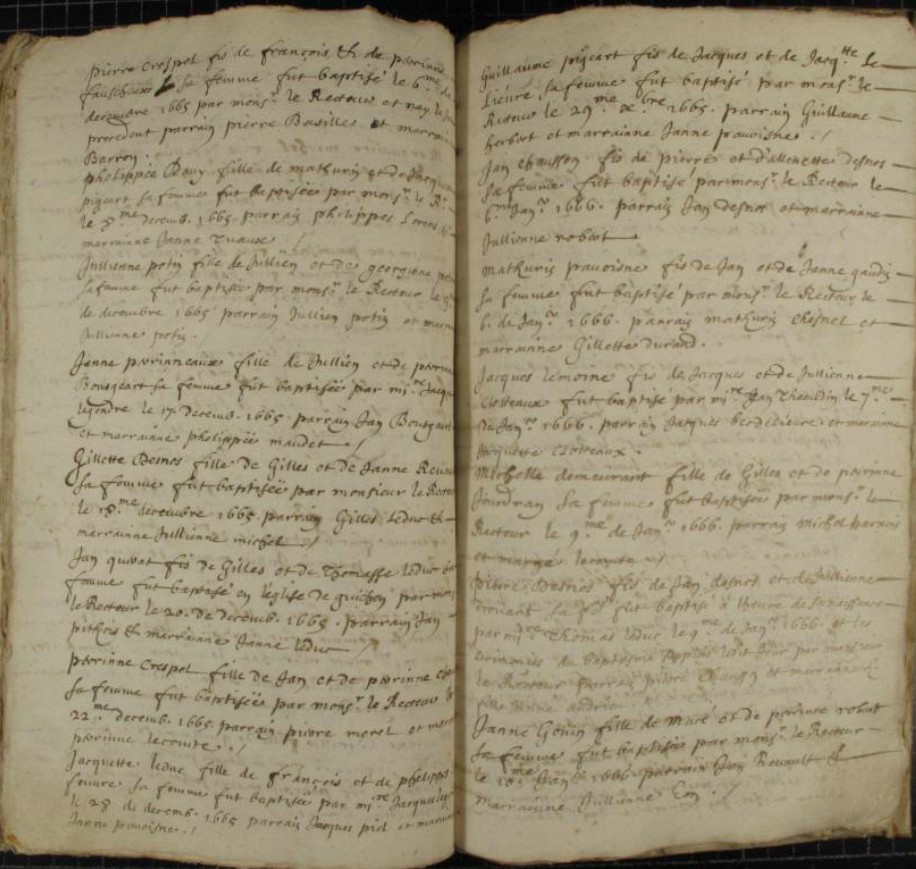 pierre Crespel fis de françois & de perrine
fauscheux sa femme fut baptisé le 6.me de
decembre 1665 par mons.r le Recteur et nay le
precedent parrain pierre Basille et marra
Barron.
philippe Douy fille de mathurin et de Jacquem
pigeart sa femme fut baptisée par mons.r le Re
le 8.me decemb. 1665 parrain philippes Lorens &
marraine Janne Tuaux /
Jullienne potin fille de Jullien et de georgine pe
sa femme fut baptisée par mons.r le Recteur le
de decembre 1665 parrain Jullien potin et marra
Jullienne potin.
Janne perinneaux fille de Jullien et de perin
Bourgeart sa femme fut baptisée par mi.re Jacque
legendre le 17. decemb. 1665. parrain Jan Bourgeart
et marraine philippe maudet ./
Gillette Desnos fille de Gilles et de Janne Renau
sa femme fut baptisée par monsieur le Recteu
le 18.me decembre 1665 parrain Gilles Leduc &
marraine Jullienne michel ./
Jan fis de Gilles et de Thomasse leduc sa
femme fut baptisé en l'eglise de guichen par mons
le Recteur le 20. de decemb. 1665. parrain Jan
& marraine Janne leduc /
perinne Crespel fille de Jan et de perinne
sa femme fut baptisée par mons.r le Recteur le
22.me decemb. 1665 parrain pierre morel et marr
perinne lecomte ./
Jacquette leduc fille de françois et de philippe
feuvre sa femme fut baptisée par mi.re Jacques leg
le 28 de decemb. 1665 parrain Jacques piel et marra
Janne pavoisne ./
Guillaume pigeart fis de Jacques et de Jacq.tte Le
Lievre sa femme fut baptisé par mons.r le
Recteur le 29.me xbre 1665. parrain Guillaume
herbert et marraine Janne pavoisne ./
Jan Chausson fis de pierre et d'allenette desnos
sa femme fut baptisé par mons.r le Recteur le
6.me Jan.r 1666. parrain Jan desnos et marraine
Jullienne robert
mathurin pavoisne fis de Jan et de Janne gaudin
sa femme fut baptisé par mons.r le Recteur le
6. de Jan.r 1666. parrain mathurin Chesnel et
marraine Gillette durand.
Jacques lemoine fis de Jacques et de Jullienne
Crosteaux fut baptisé par mi.re Jan Thebaldin le 7.me
de Jan.r 1666. parrain Jacques berdelievre et marraine
Jacquette Crosteaux.
Michelle demeurant fille de Gilles et de perrine
Jourdran sa femme fut baptisée par mons.r le
Recteur le 9.me de Jan.r 1666. parrain michel
et margé lecomte ./
pierre Desnos fis de Jan desnos et de Jullienne
drouart sa fe. fut baptisé à l'heure de sa naissance
par mi.re Thomas leduc le 9.me de Jan.r 1666. et les
cerimonies du baptesme par monsieur
le Recteur parrain pierre Chausson et marraine
fille Janne
Janne Gouin fille de macé et de perrine robert
sa femme fut baptisée par mons.r le Recteur
le 10.me Jan.r 1666. parrain Jan Renault &
marraine Jullienne